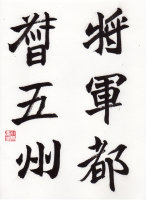 將軍都
督五州